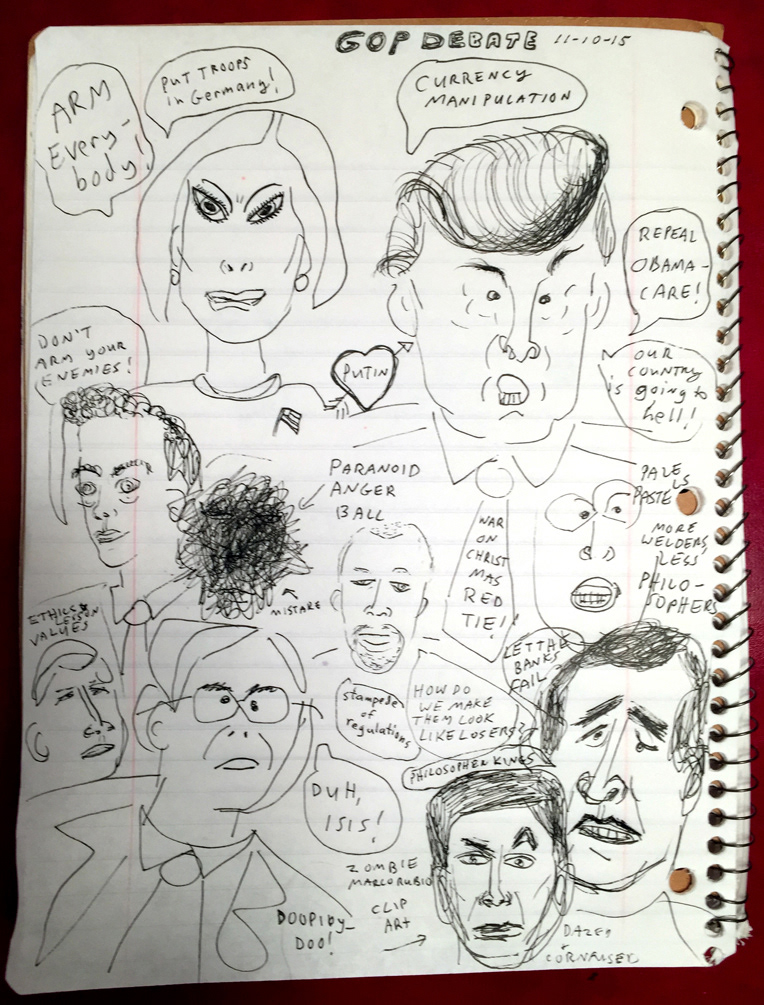 GOP DEBATE 11-10-15
ARM
Every-
body!
PUT TROOPS
in Germany!
CURRENCY
MANIPULATION
REPEAL
OBAMA-
CARE!
DON'T
ARM YOUR
ENEMIES!
PUTIN
OUR
COUNTRY
is going to
hell!
PARANOID
ANGER
BALL
MISTAKE
WAR
ON
CHRIST
MAS
RED
TIE!!
PALE
PASTE
MORE
WELDERS,
LESS
PHILO-
SOPHERS
ETHICS
LESSON
VALUES
stampede
of
regulations
HOW DO
WE MAKE
THEM LOOK
LIKE LOSERS?
LET THE
BANKS
FAIL
PHILOSOPHER KINGS
DUH,
ISIS!
ZOMBIE
MARCO RUBIO
CLIP
ART
DOOPIby-
DOO!
DAZED
+